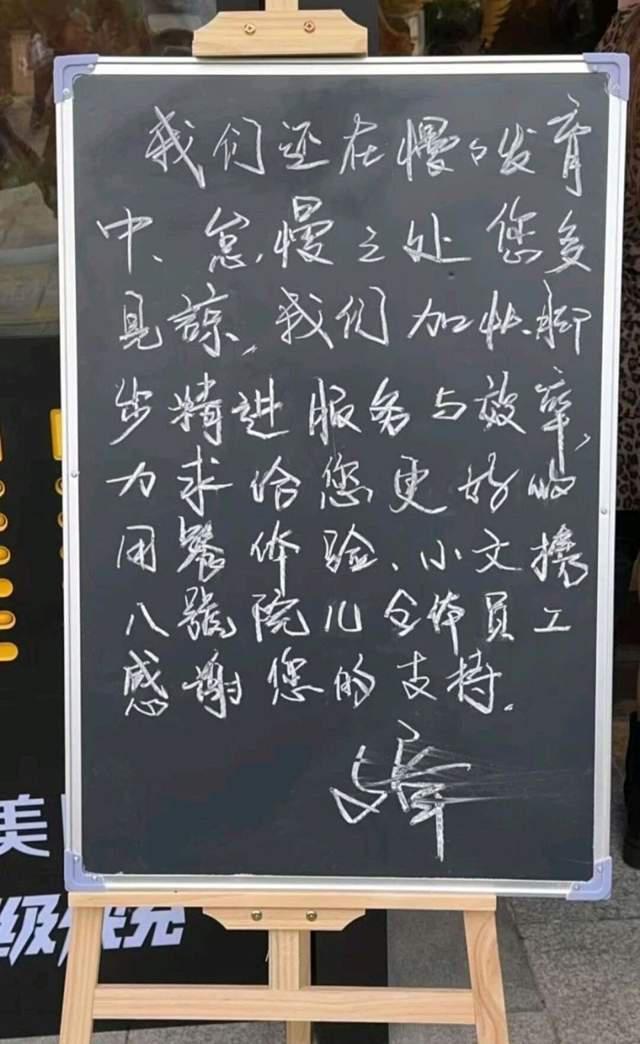 我们还在慢々发育
中、怠慢之处您多
見諒,我们加快脚
步精进服务与效率,
力求给您更好的
用餐体验、小文携
八號院儿全体員工
感谢您的支持.
美
级快充